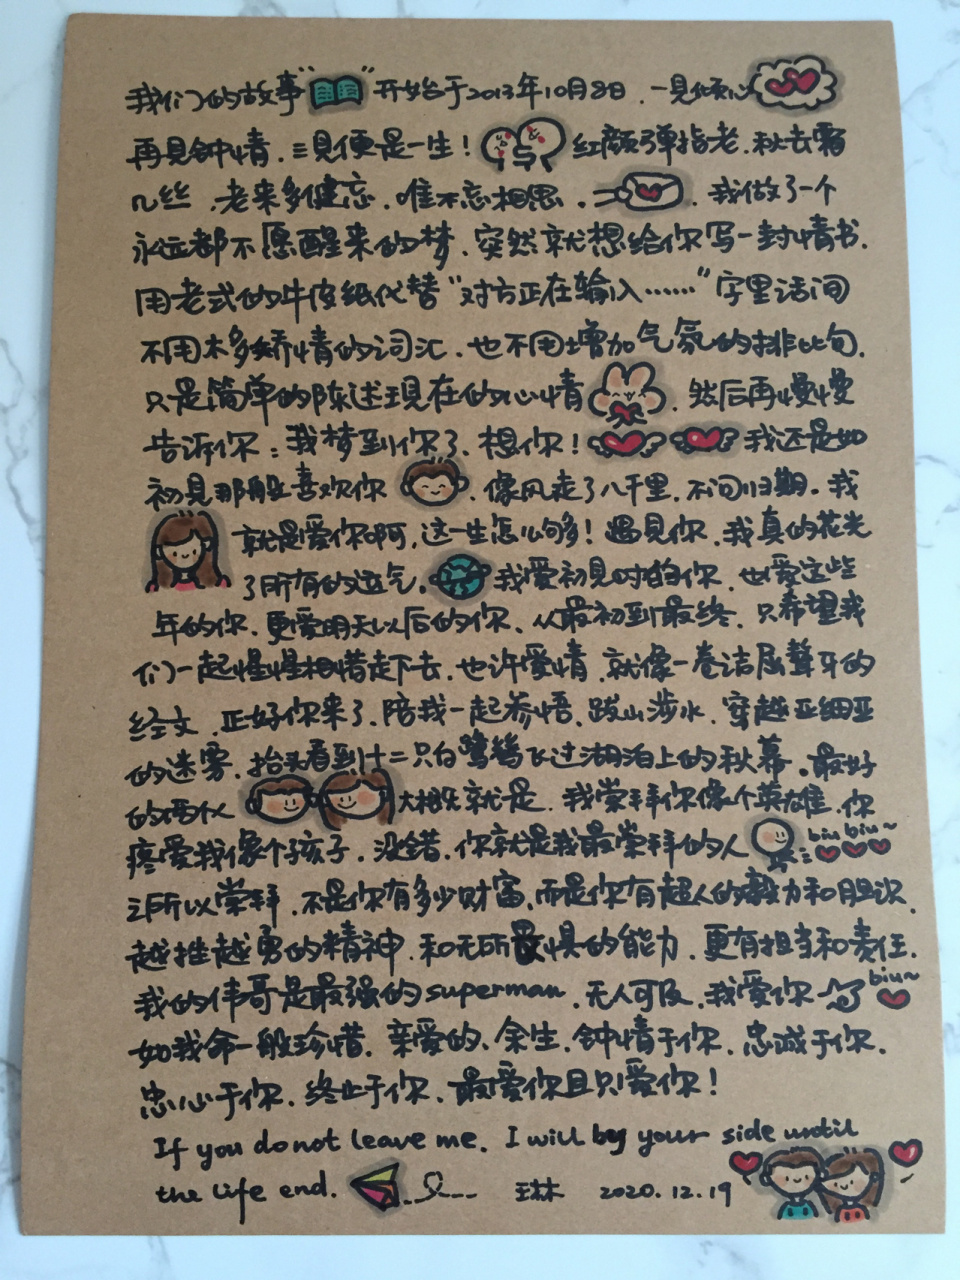 我们的故事“ ”开始于2013年10月8日.一见倾心
再见钟情.三见便是一生！红颜弹指老.秋去霜
几丝.老来多健忘.唯不忘相思. .我做了一个
永远都不愿醒来的梦.突然就想给你写一封情书.
用老式的牛皮纸代替“对方正在输入……”字里话间
不用太多矫情的词汇.也不用增加气氛的排比句.
只是简单的陈述现在的心情 .然后再慢慢
告诉你：我梦到你了.想你！我还是如
初见那般喜欢你 .像风走了八千里.不问归期.我
就是爱你啊,这一生怎么够！遇见你.我真的花光
了所有的运气.我爱初见时的你.也爱这些
年的你.更爱明天以后的你、从最初到最终.只希望我
们一起惺惺相惜走下去.也许爱情.就像一卷诘屈聱牙的
经文.正好你来了.陪我一起参悟.跋山涉水.穿越亚细亚
的迷雾.抬头看到十二只白鹭鸶飞过湖泊上的秋幕.最好
的两似 大概就是.我崇拜你像个英雄.你
疼爱我像个孩子.没错.你就是我最崇拜的人 biu biu~
之所以崇拜.不是你有多少财富.而是你有超人的毅力和胆识.
越挫越勇的精神.和无所畏惧的能力.更有担当和责任.
我的伟哥是最强的superman.无人可及.我爱你 biu~
如我命一般珍惜.亲爱的、余生.钟情于你.忠诚于你.
忠心于你.终止于你.最爱你且只爱你！
If you do not leave me. I will by your side until
the life end. 琳 2020.12.19